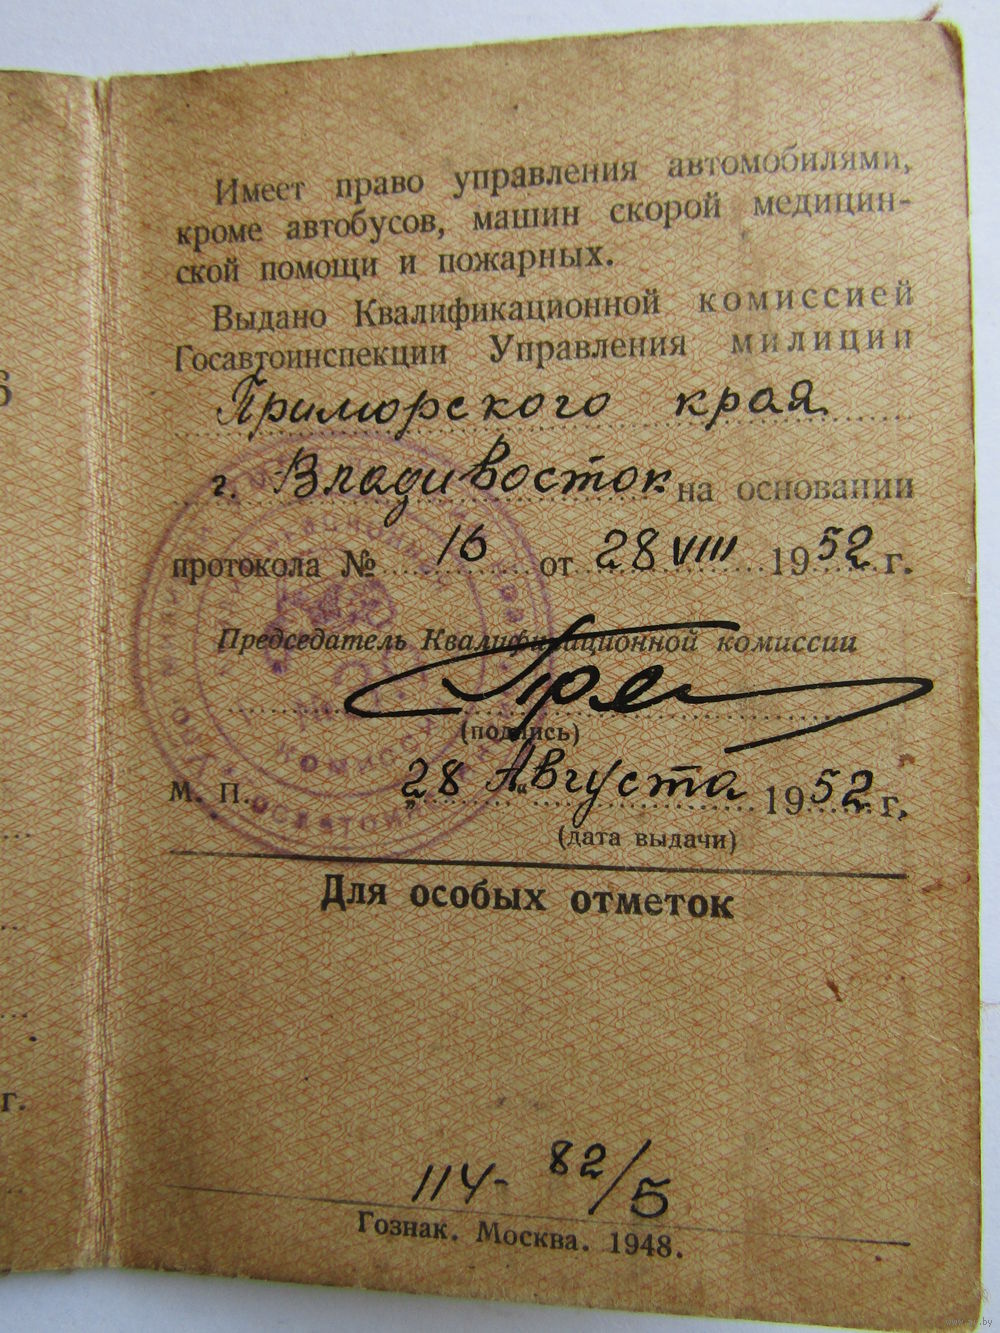 Имеет право управления автомобилями,
кроме автобусов, машин скорой медицин-
ской помощи и пожарных.
Выдано Квалификационной комиссией
Госавтоинспекции Управления милиции
Приморского края
г. Владивосток на основании
протокола № 16 от 28 VIII 1952 г.
Председатель Квалификационной комиссии
(подпись)
М. П. „28 “ Августа 1952 г.
(дата выдачи)
Для особых отметок
114- 82/5
Гознак. Москва. 1948.
6
г.